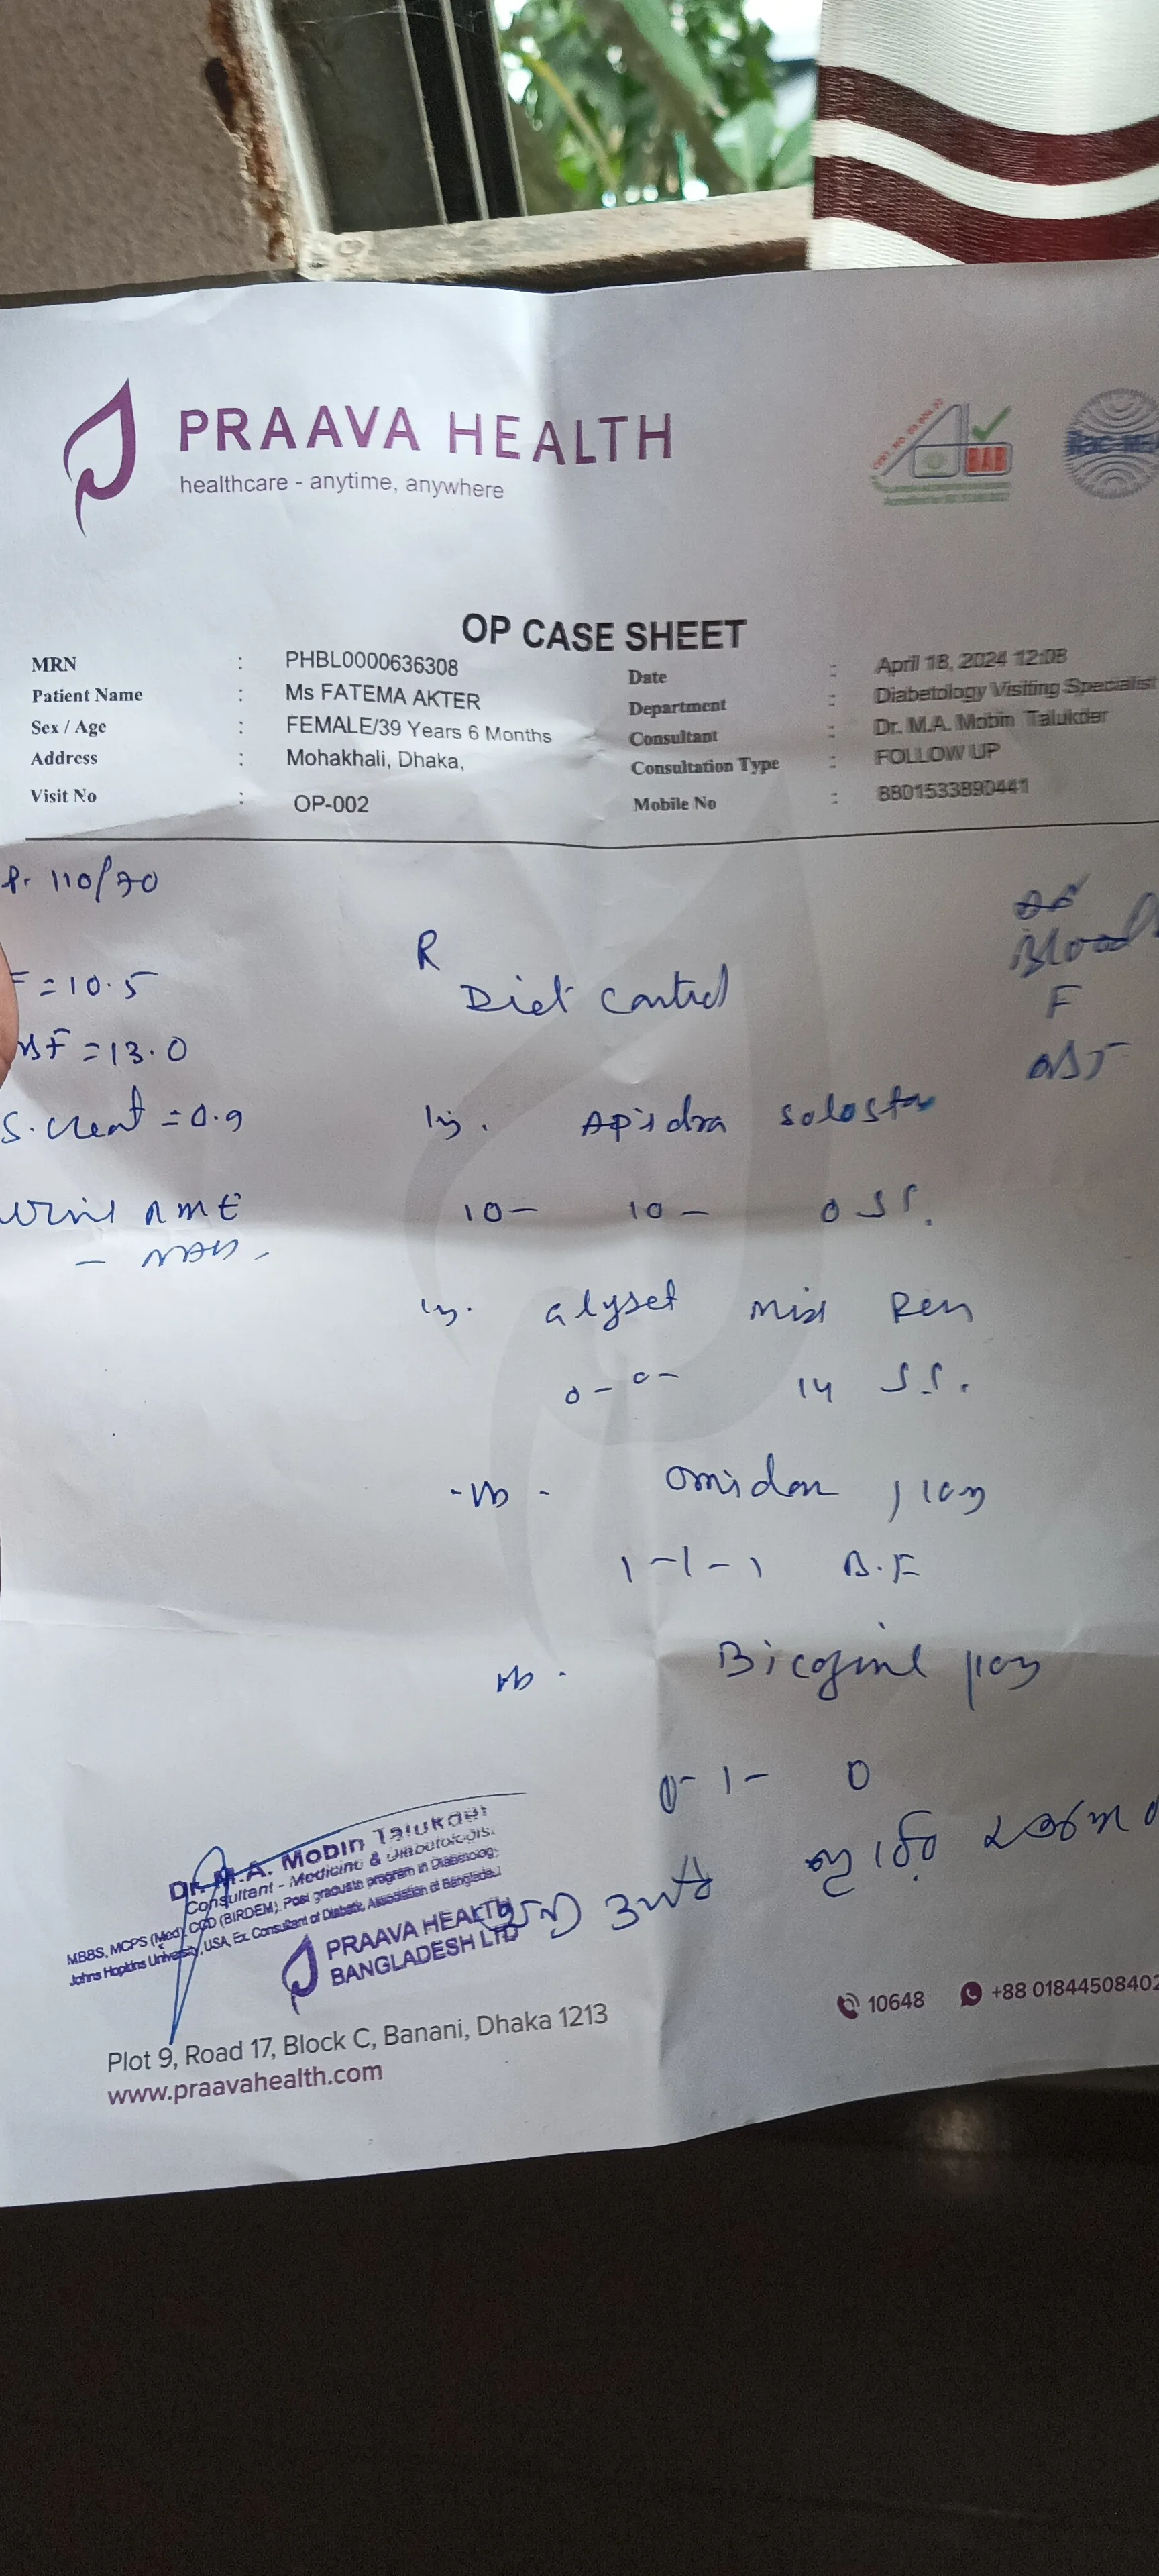 PRAAVA HEALTH
healthcare - anytime, anywhere
OP CASE SHEET
MRN : PHBL0000636308
Patient Name : Ms FATEMA AKTER
Sex / Age : FEMALE/39 Years 6 Months
Address : Mohakhali, Dhaka,
Visit No : OP-002
Date : April 18, 2024 12:08
Department : Diabetology Visiting Specialist
Consultant : Dr. M.A. Mobin Talukder
Consultation Type : FOLLOW UP
Mobile No : 8801533890441
P. 110/70
F = 10.5
ABF = 13.0
S. Creat = 0.9
Urine RME
Blood
F
R
Diet Control
Inj. Apidra Solostar
10 - 10 - 0
Inj. Glyset Mix Pen
0 - 0 - 14
Omidon
1 - 1 - 1 B.F
0 - 1 - 0
Dr. M.A. Mobin Talukder
Consultant - Medicine & Diabetologist
MBBS, MCPS (Med), CCD (BIRDEM), Post graduate program in Diabetology
Johns Hopkins University, USA, Ex. Consultant of Diabetic Association of Bangladesh
PRAAVA HEALTH
BANGLADESH LTD
10648 +88 01844508402
Plot 9, Road 17, Block C, Banani, Dhaka 1213
www.praavahealth.com